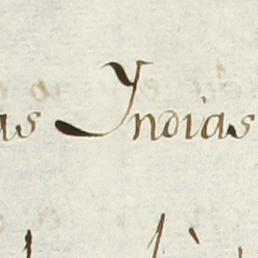 as Yndias